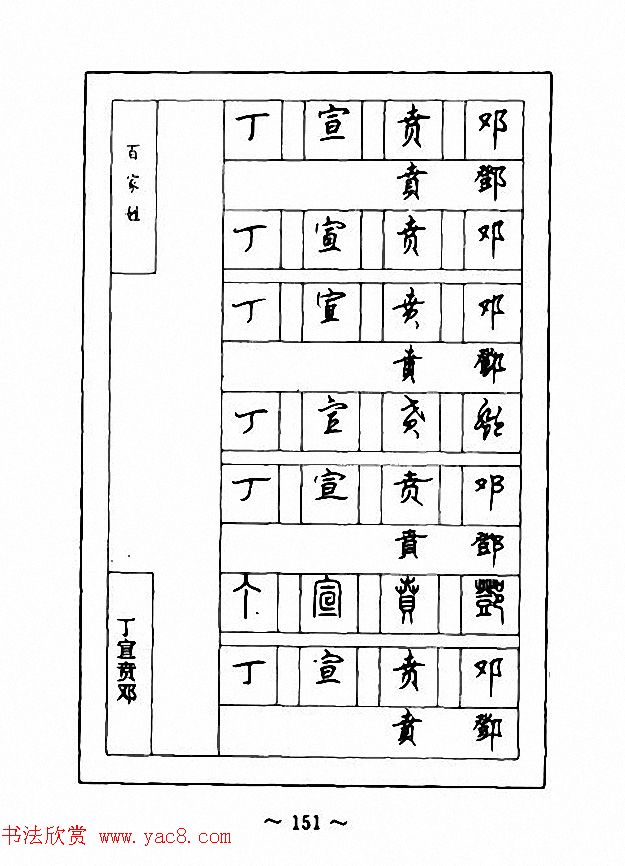 百家姓
丁 宣 贲 邓
賁 鄧
丁 宣 贲 邓
丁 宣 贲 邓
賁 鄧
丁 宣 贲 鄧
丁 宣 贲 邓
賁 鄧
丁 宣 賁 鄧
丁 宣 贲 邓
賁 鄧
丁宣贲邓
~ 151 ~
书法欣赏 www.yac8.com